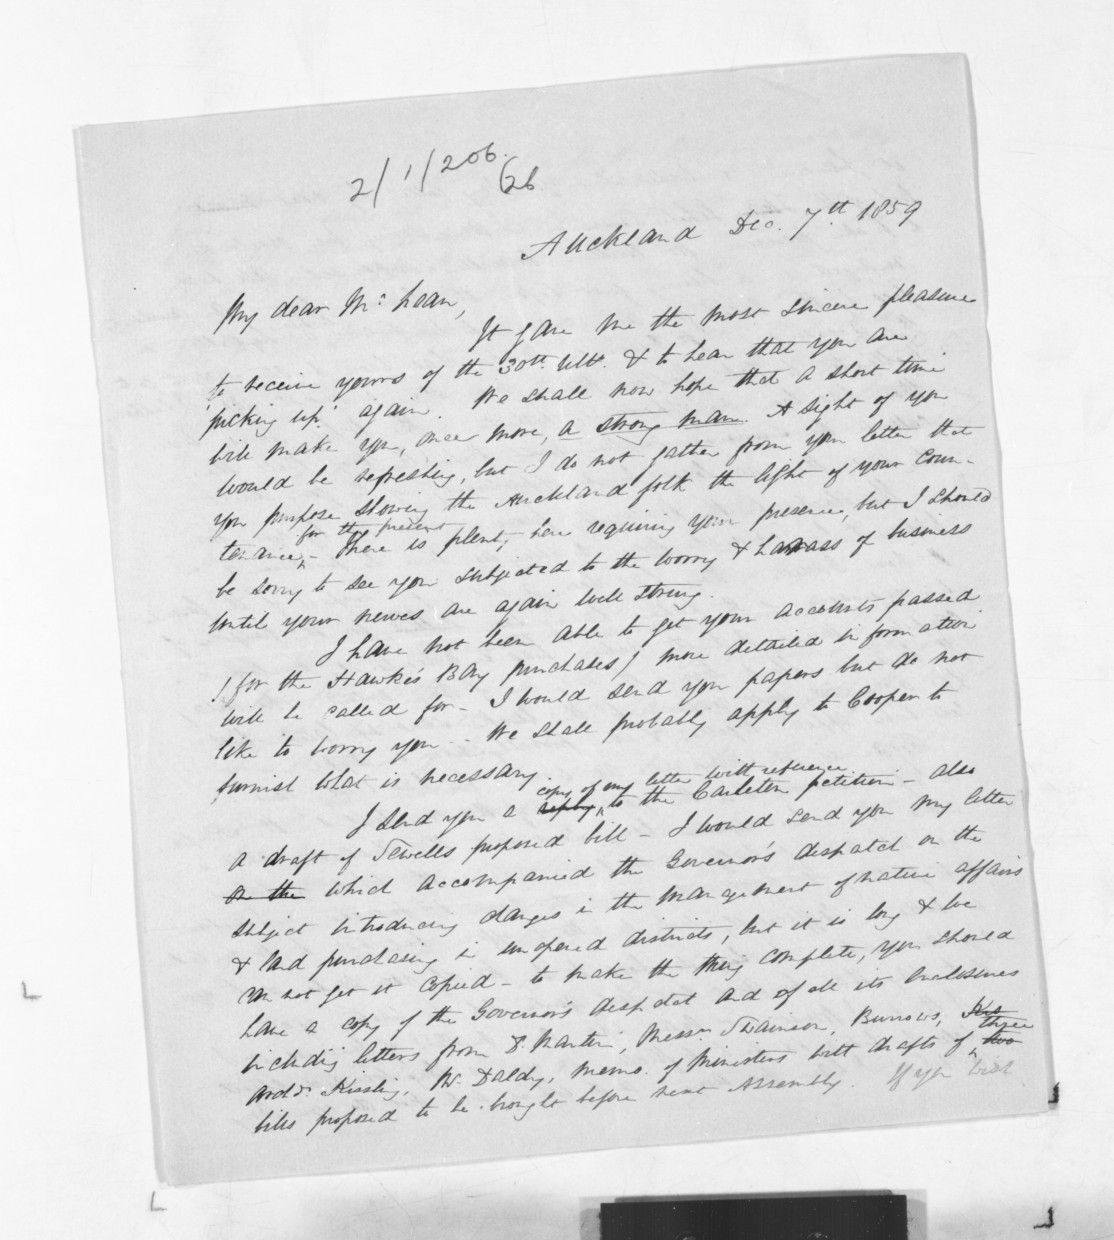 2/1/206.
(26
Auckland Dec. 7th 1859
My dear Mc Lean,
It gave me the most sincere pleasure
to receive yours of the 30th ult. & to hear that you are
'picking up' again. We shall now hope that a short time
will make you, once more, a strong man. A sight of you
would be refreshing, but I do not gather from your letter that
you purpose showing the Auckland folk the light of your coun-
tenance, for the present - There is plenty here requiring your presence, but I should
be sorry to see you subjected to the worry & harass of business
until your nerves are again well strung.
I have not been able to get your accounts passed
(for the Hawke's Bay purchases) more detailed information
will be called for - I would send you papers but do not
like to worry you - We shall probably apply to Cooper to
furnish what is necessary.
I send you a reply copy of my letter with reference to the Carleton petition - also
a draft of Sewells proposed bill - I would send you my letter
on the which accompanied the Governor's despatch on the
subject introducing changes in the management of native affairs
& land purchasing in unopened districts, but it is long & we
can not get it copied - to make the thing complete, you should
have a copy of the Governor's despatch and of all its enclosures
including letters from Martin, Messrs Swainson, Burrows,
Archdn. Kissling, Mr. Daldy, memo. of Ministers with drafts of two three
bills proposed to be brought before next Assembly. If you wish